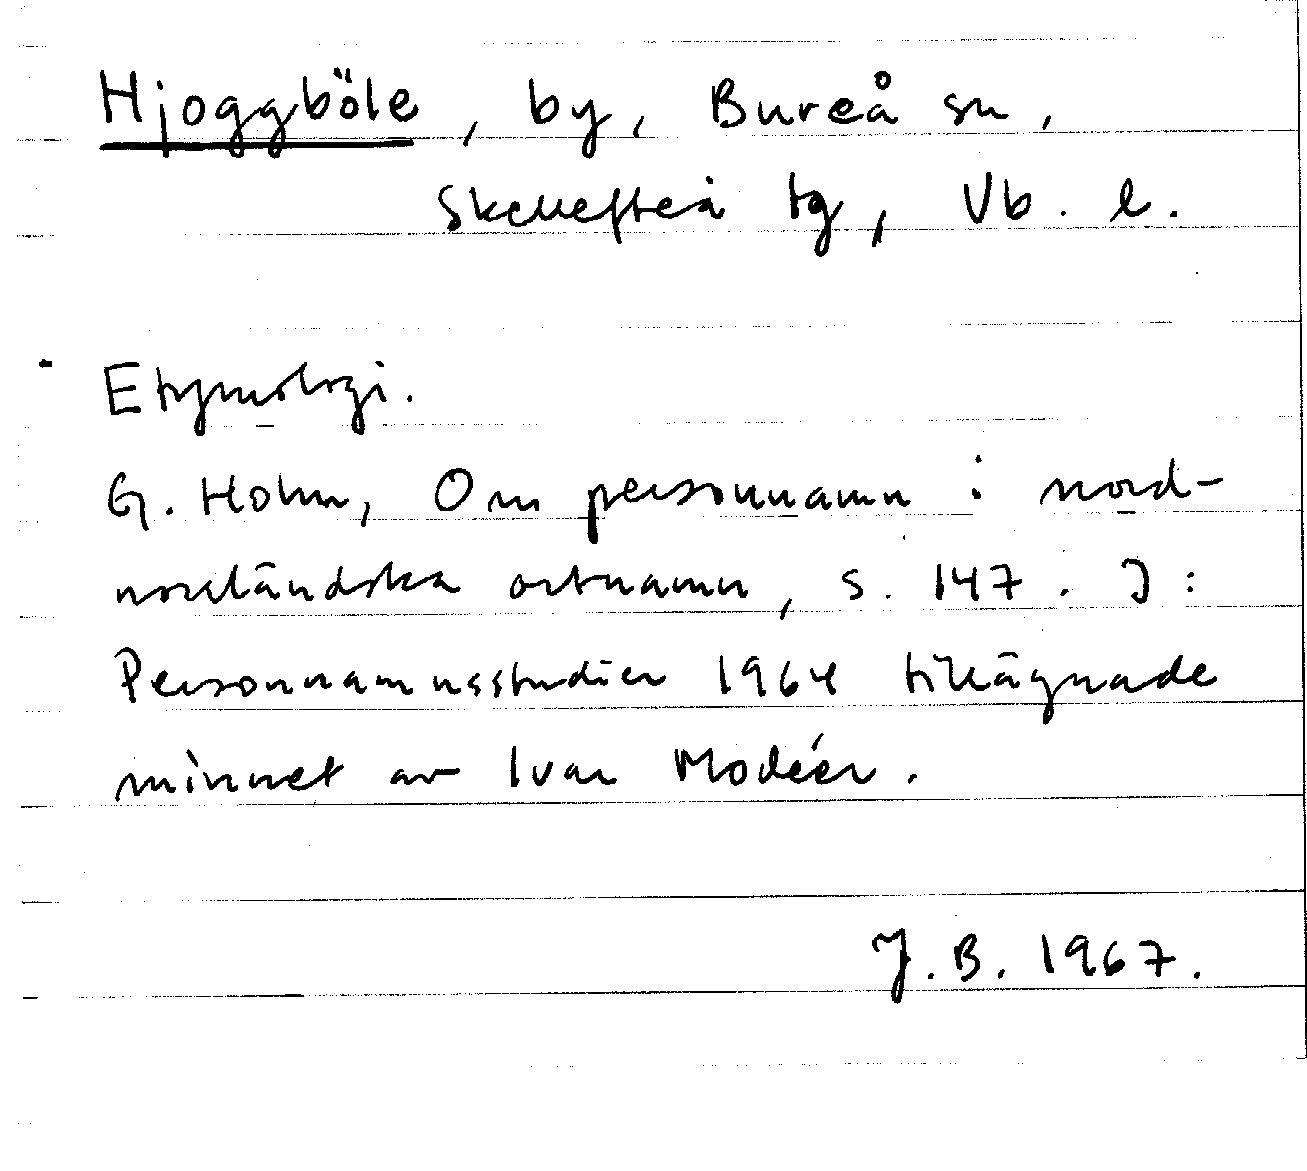 Hjoggböle, by, Bureå sn,
Skellefteå tg, Vb. l.
Etymologi.
G. Holm, Om personnamn i nord-
norrländska ortnamn, s. 147. I:
Personnamnsstudier 1964 tillägnade
minnet av Ivar Modéer.
J.B. 1967.